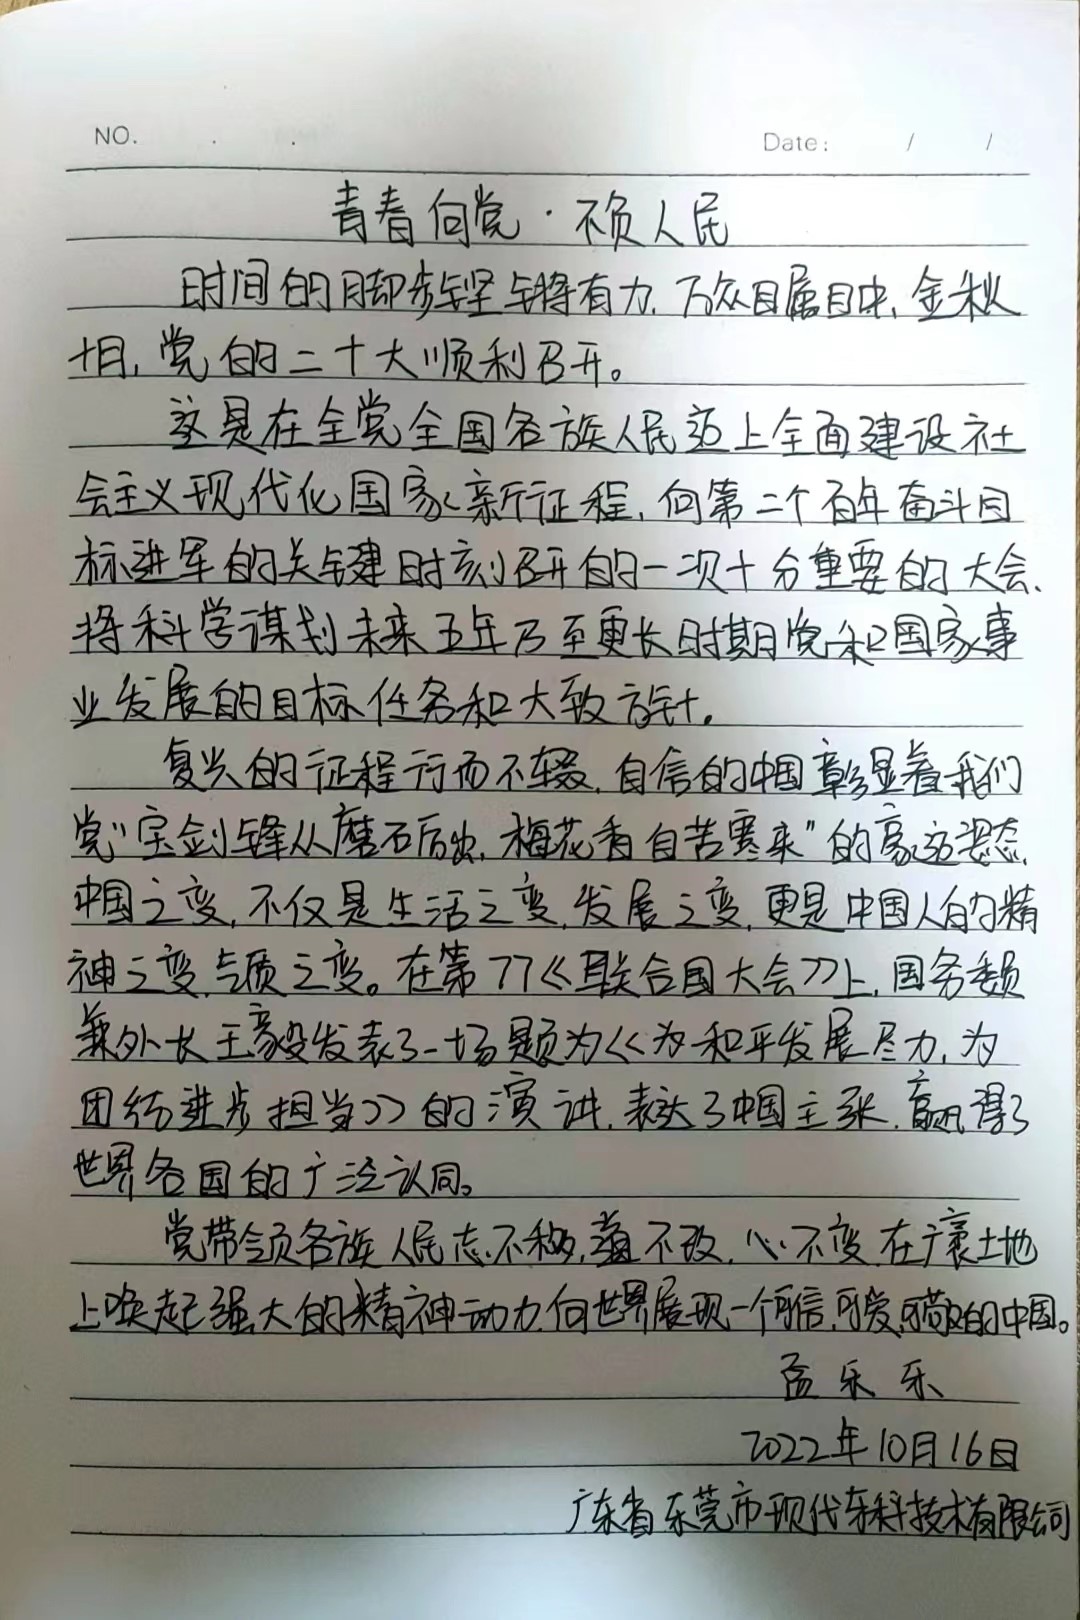 NO.
Date: / /
青春向党·不负人民
时间的脚步铿锵有力,万众目属目中,金秋
十月,党的二十大顺利召开。
这是在全党全国各族人民迈上全面建设社
会主义现代化国家新征程,向第二个百年奋斗目
标进军的关键时刻召开的一次十分重要的大会,
将科学谋划未来五年乃至更长时期党和国家事
业发展的目标任务和大致方针。
复兴的征程行而不辍,自信的中国彰显着我们
党“宝剑锋从磨石厉出,梅花香自苦寒来”的豪迈姿态,
中国之变,不仅是生活之变,发展之变,更是中国人的精
神之变,气质之变。在第77《联合国大会》上,国务委员
兼外长王毅发表了一场题为《为和平发展尽力,为
团结进步担当》的演讲,表达了中国主张,赢得了
世界各国的广泛认同。
党带领各族人民志不移,道不改,心不变,在广袤土地
上唤起强大的精神动力,向世界展现一个可信,可爱,可敬的中国。
孟乐乐
2022年10月16日
广东省东莞市现代车科技术有限公司